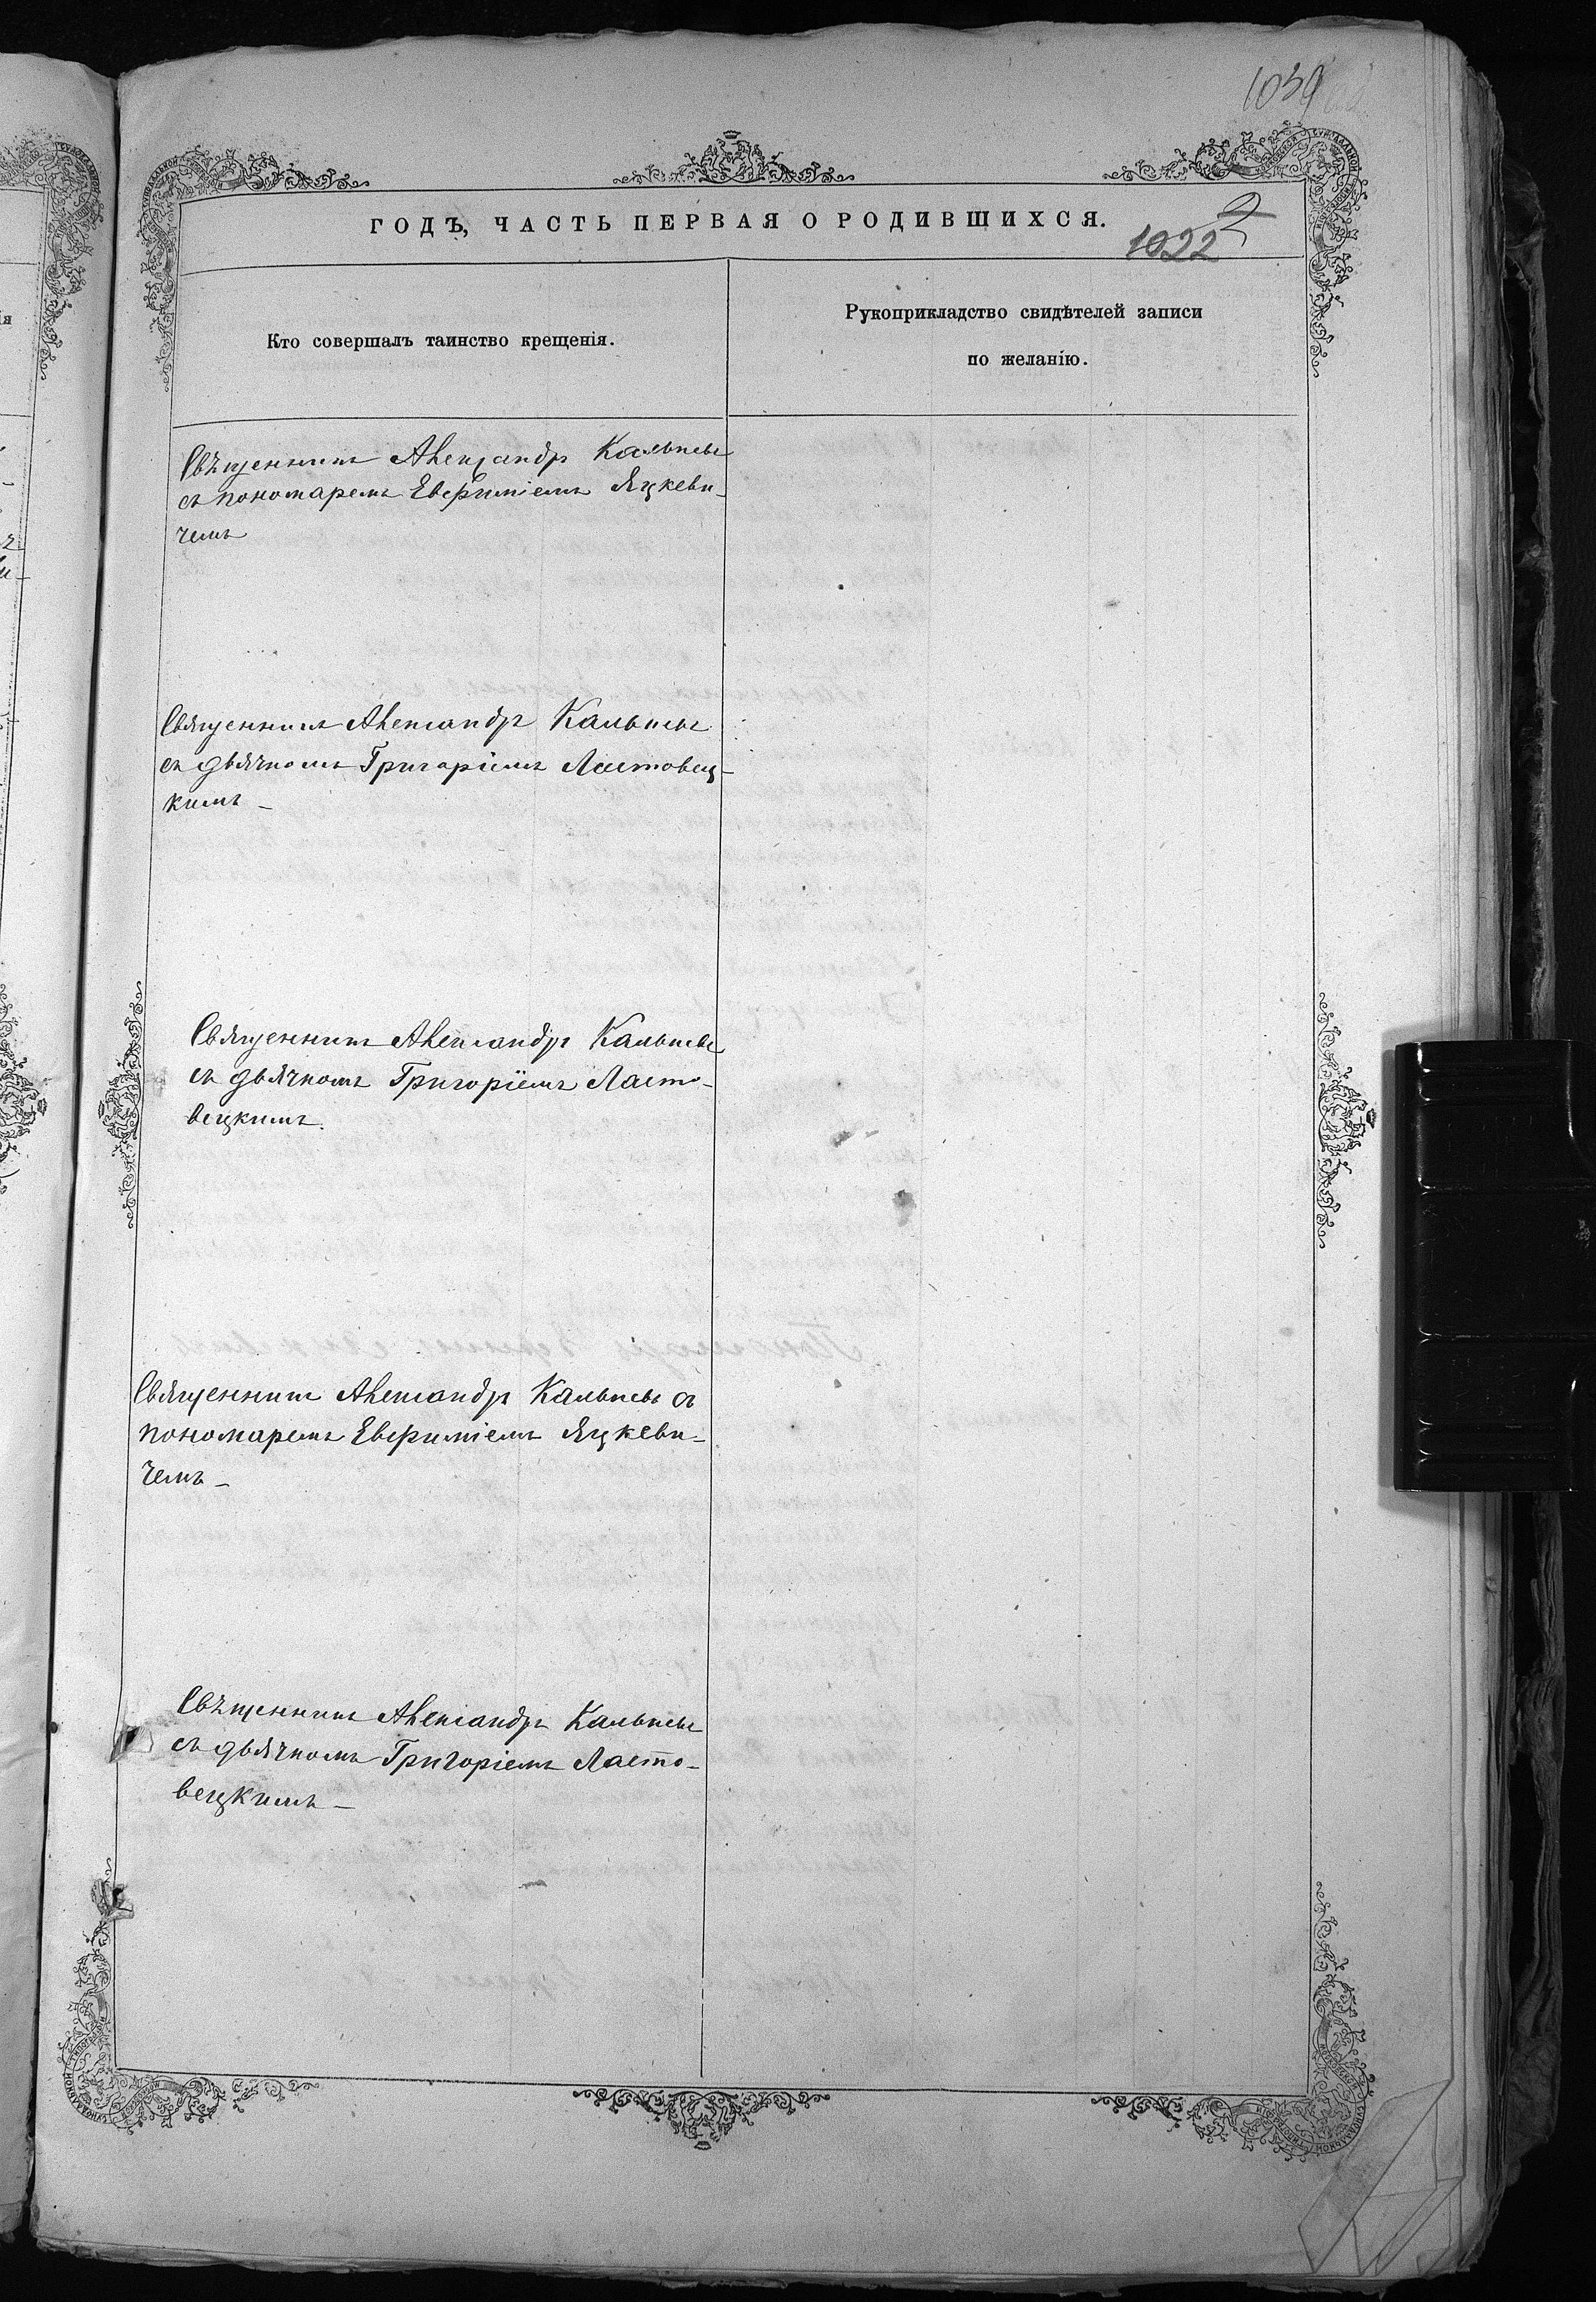 1039
ГОДЪ, ЧАСТЬ ПЕРВАЯ О РОДИВШИХСЯ.
1022
2
Кто совершалъ таинство крещенія.
Рукоприкладство свидѣтелей записи
по желанію.
Священникъ Александръ
съ пономаремъ Евфиміемъ Яцкеви-
чемъ
Священникъ Александръ
съ дьячкомъ Григоріемъ Ластовец-
кимъ
Священникъ Александръ
съ дьячкомъ Григоріемъ Ласто-
вецкимъ.
Священникъ Александръ съ
пономаремъ Евфиміемъ Яцкеви-
чемъ
Священникъ Александръ
съ дьячкомъ Григоріемъ Ласто-
вецкимъ